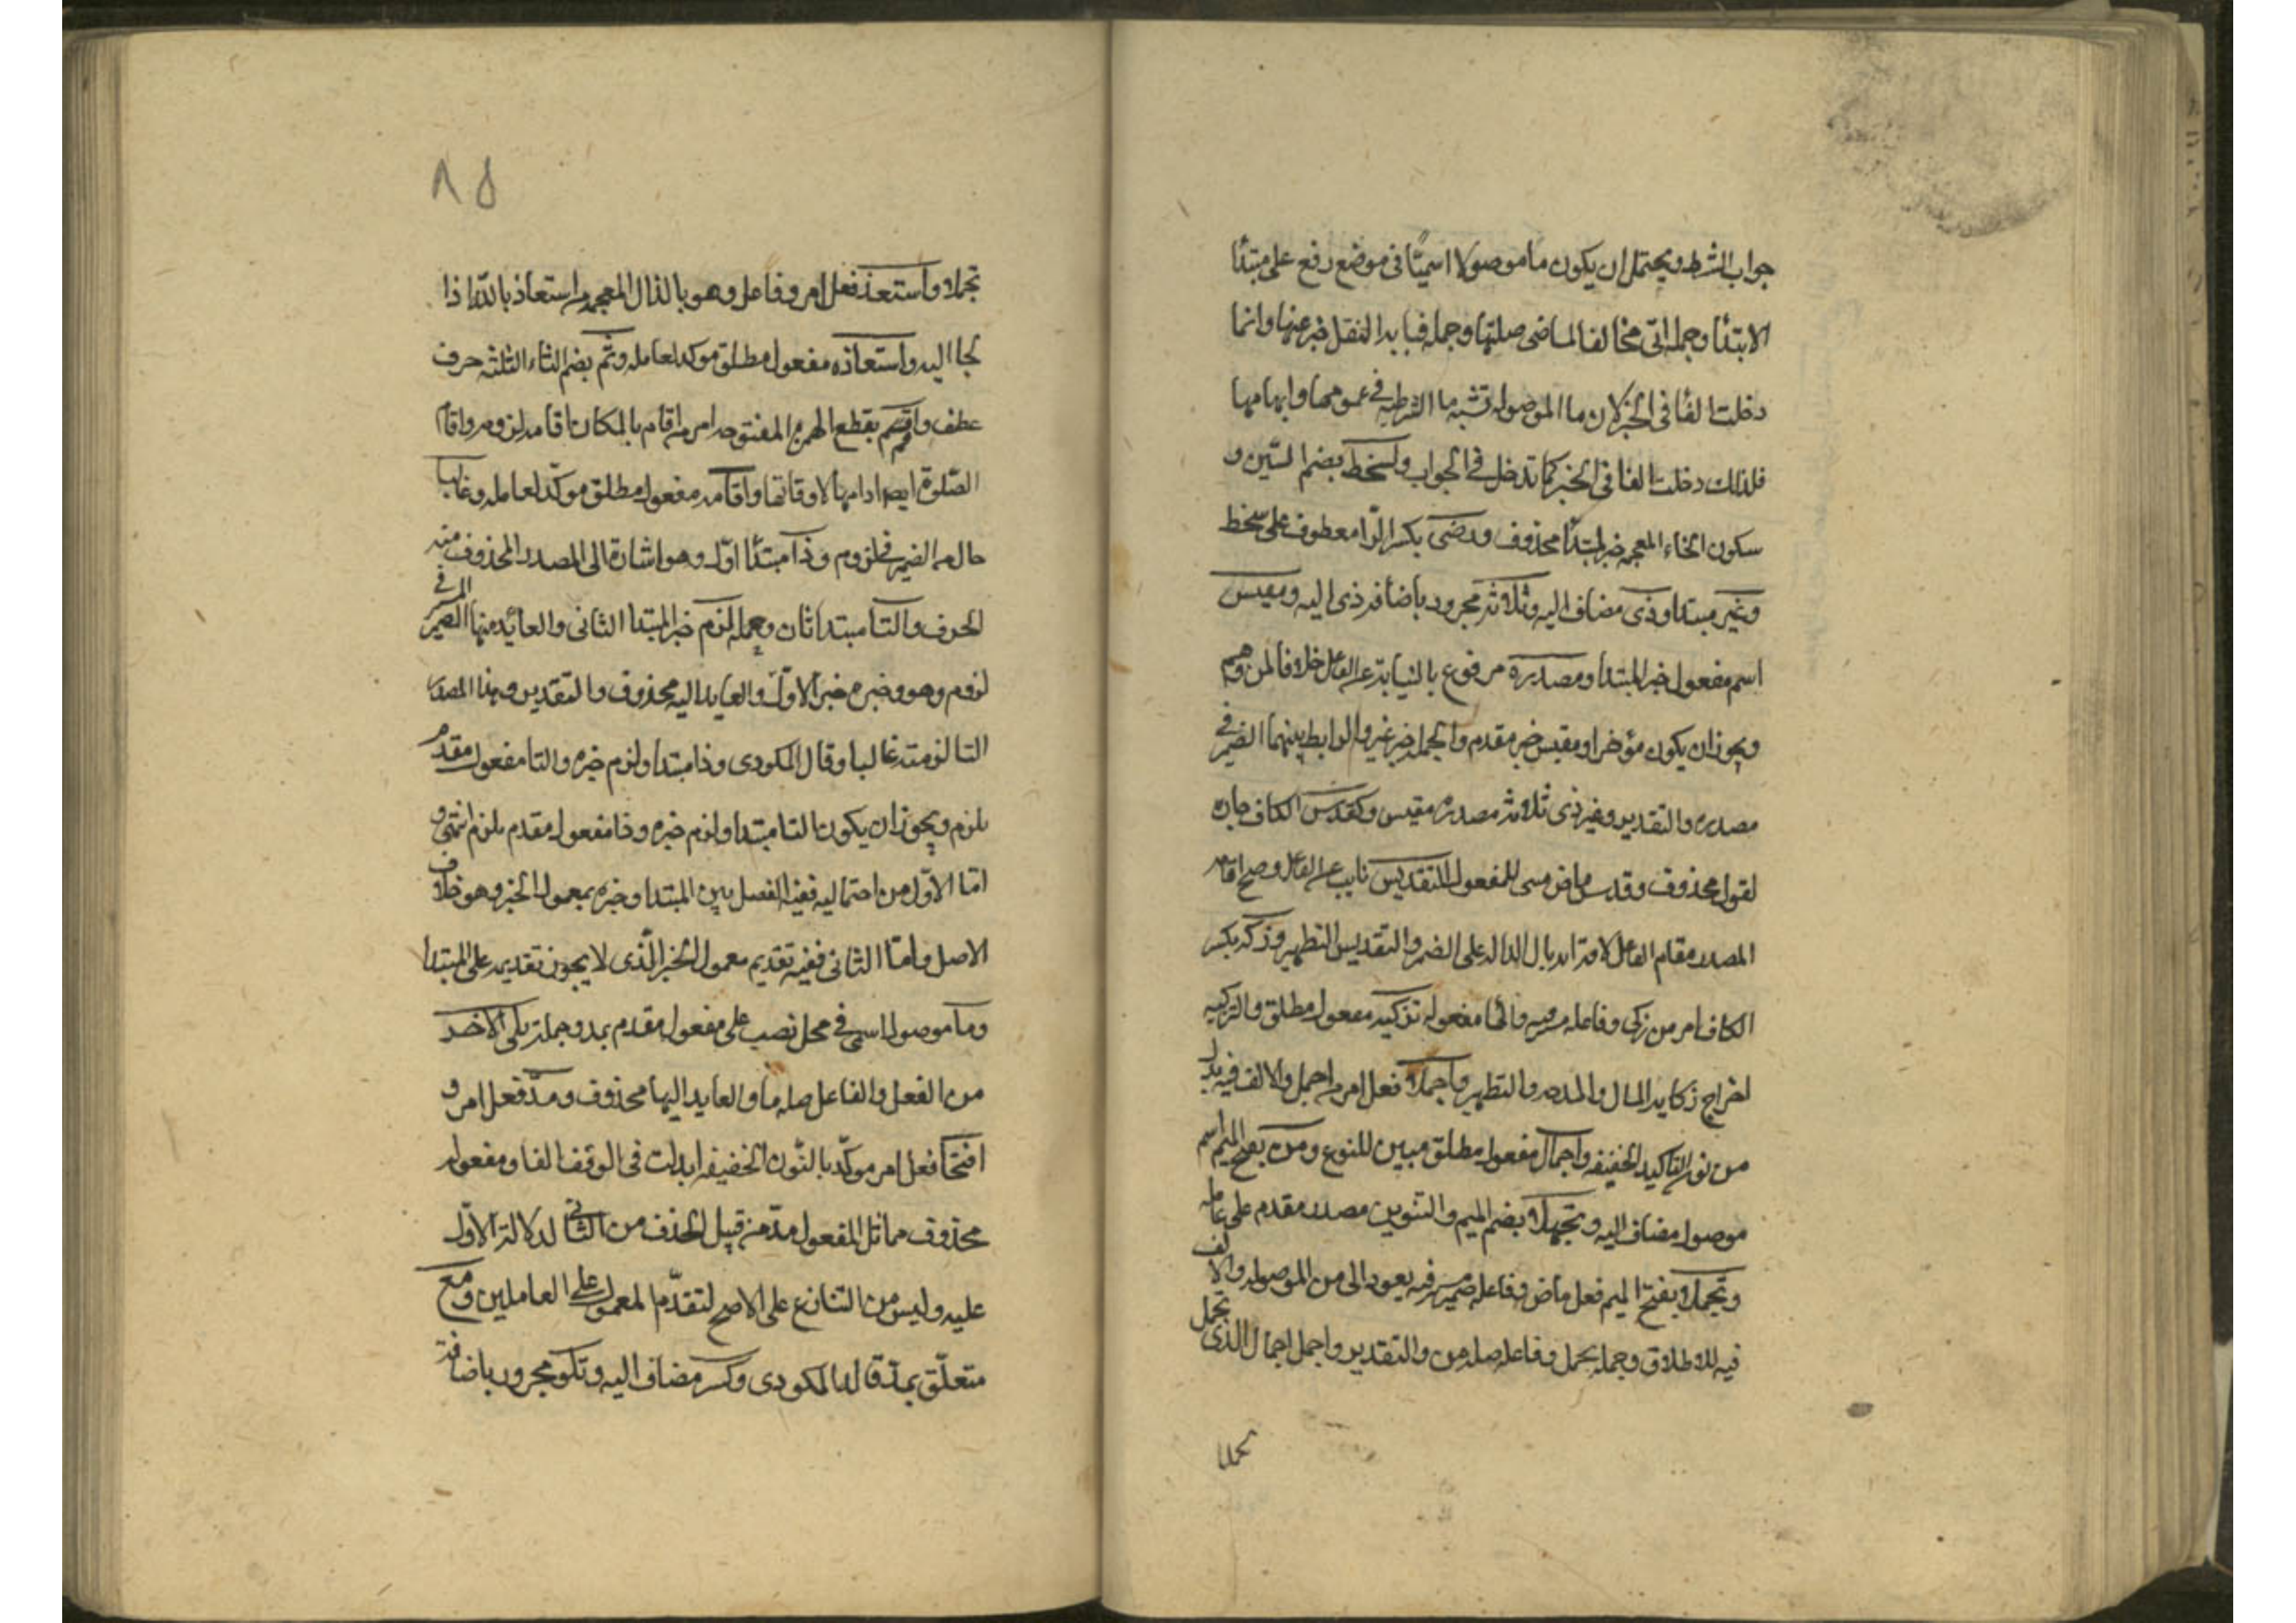 جواب الشرط ويحتمل ان يكون ما موصولا اسميّا فى موضع رفع على مبتدأ
الابتدأ وجملة اتى مخالفا لماضى صلتها وجملة فبابه النقل خبر عنها وانما
دخلت الفأ فى الخبر لان ما الموصولة تشبه ما الشرطية فى عمومها وابهامها
فلذلك دخلت الفا فى الخبر كما تدخل فى الجواب وسخط بضم السّين و
سكون الخاء المعجمه خبر لمبتدأ محذوف ورضى بكسر الرّا معطوف على سخط
وغير مبتدا وذى مضاف اليه وثلاثة مجرور باضافة ذى اليه ومقيس
اسم مفعول خبر المبتدا ومصدره مرفوع بالنيابة عن الفاعل خلافا لمن وهم
ويجوز ان يكون مؤخرا ومقيس خبر مقدم والجملة خبر غير والرابط بينهما الضمير فى
مصدره والتقدير وغير ذى ثلاثة مصدره مقيس وكقدس الكاف جارة
لقول محذوف وقدس ماض مبنى للمفعول التقديس نايب عن الفاعل وصح اقامة
المصدر مقام الفاعل لاقترانه بال الدالة على الضمير والتقديس التطهير وزكه بكسر
الكاف امر من زكى وفاعله مستتر فيه والها مفعوله تزكية مفعول مطلق والتزكية
اخراج زكاة المال والمدح والتطهير واجملا فعل امر من اجمل والالف فيه بدل
من نون التاكيد الخفيفه واجمال مفعول مطلق مبين للنوع ومن بفتح الميم اسم
موصول مضاف اليه وتجملا بضم الميم والتنوين مصدر مقدم على عامله
وتجملا بفتح الميم فعل ماض وفاعله ضمير مستتر فيه يعود الى من الموصولة والالف
فيه للاطلاق وجملة تجمل وفاعله صلة من والتقدير واجمل اجمال الذى تجمل
تجملا
٨٥
تجملا واستعذ فعل امر وفاعل وهو بالذال المعجمه من استعاذ بالله اذا
لجا اليه واستعاذه مفعول مطلق موكد لعامله وثم بضم الثاء المثلثه حرف
عطف واقم بقطع الهمزة المفتوحه امر من اقام بالمكان اقامه لزومه واقام
الصّلوة ايضا ادامها لاوقاتها واقامه مفعول مطلق موكّد لعامله وغالبا
حال من الضمير فى لزوم وذا مبتدأ اوّل وهو اشارة الى المصدر المحذوف منه
الحرف والتا مبتدا ثان وجملة لزم خبر المبتدا الثانى والعائد منها الضمير المستتر فى
لزوم وهو وخبره خبر الاول والعايد اليه محذوف والتقدير وهذا المصدر
التا لزمته غالبا وقال المكودى وذا مبتدا ولزم خبره والتا مفعول مقدم
بلزم ويجوز ان يكون التا مبتدا ولزم خبره وذا مفعول مقدم بلزم انتهى و
امّا الاوّل من احتماليه ففيه الفصل بين المبتدا وخبره بمعمول الخبر وهو خلاف
الاصل وامّا الثانى ففيه تقديم معمول الخبر الّذى لا يجوز تقديمه على المبتدا
وما موصول اسمى فى محل نصب على مفعول مقدم بمد وجملة يلى الاخر
من الفعل والفاعل صلة ما والعايد اليها محذوف ومدّ فعل امر و
افتحا فعل امر موكّد بالنّون الخفيفه ابدلت فى الوقف الفا ومفعوله
محذوف مماثل لمفعول مدّ من قبيل الحذف من الثانى لدلالة الاوّل
عليه وليس من التنازع على الاصح لتقدّم المعمول على العاملين ومع
متعلّق بمدّ قاله المكودى وكسر مضاف اليه وتلو مجرور باضافة